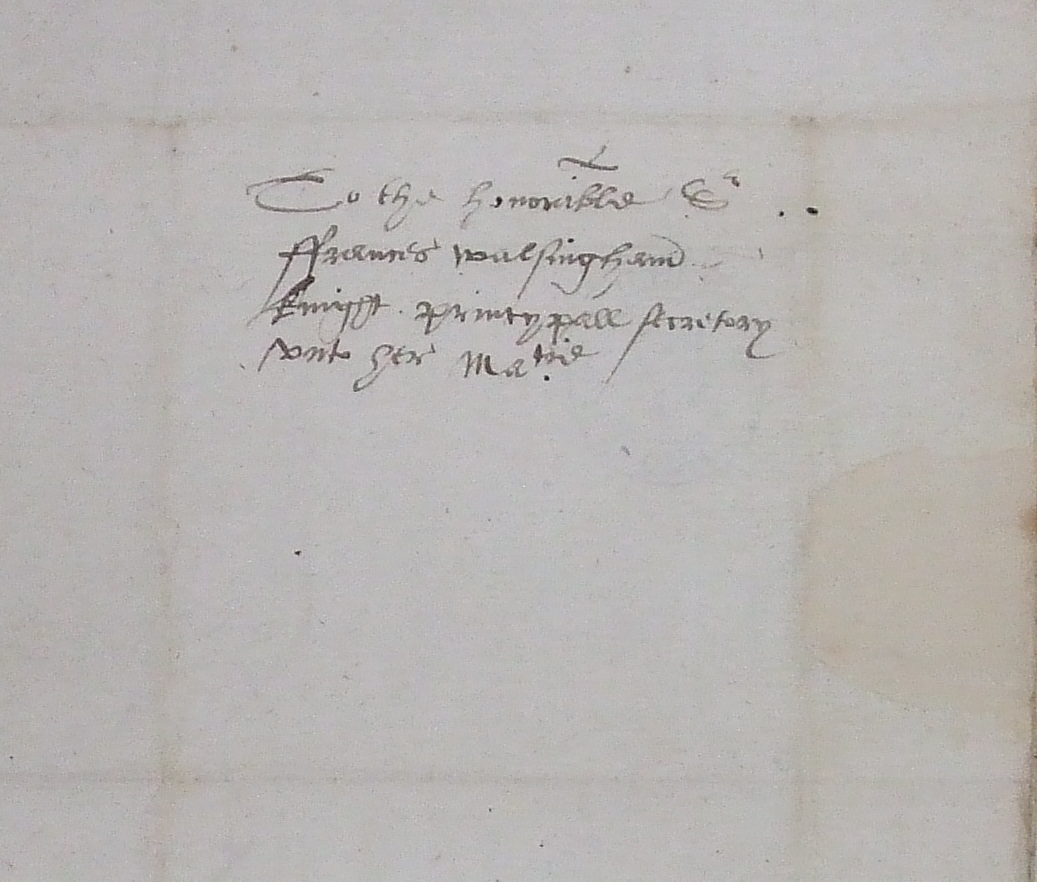 To the honorable Sr
ffrances walsingham
knight principall secretory
vnto her Matie